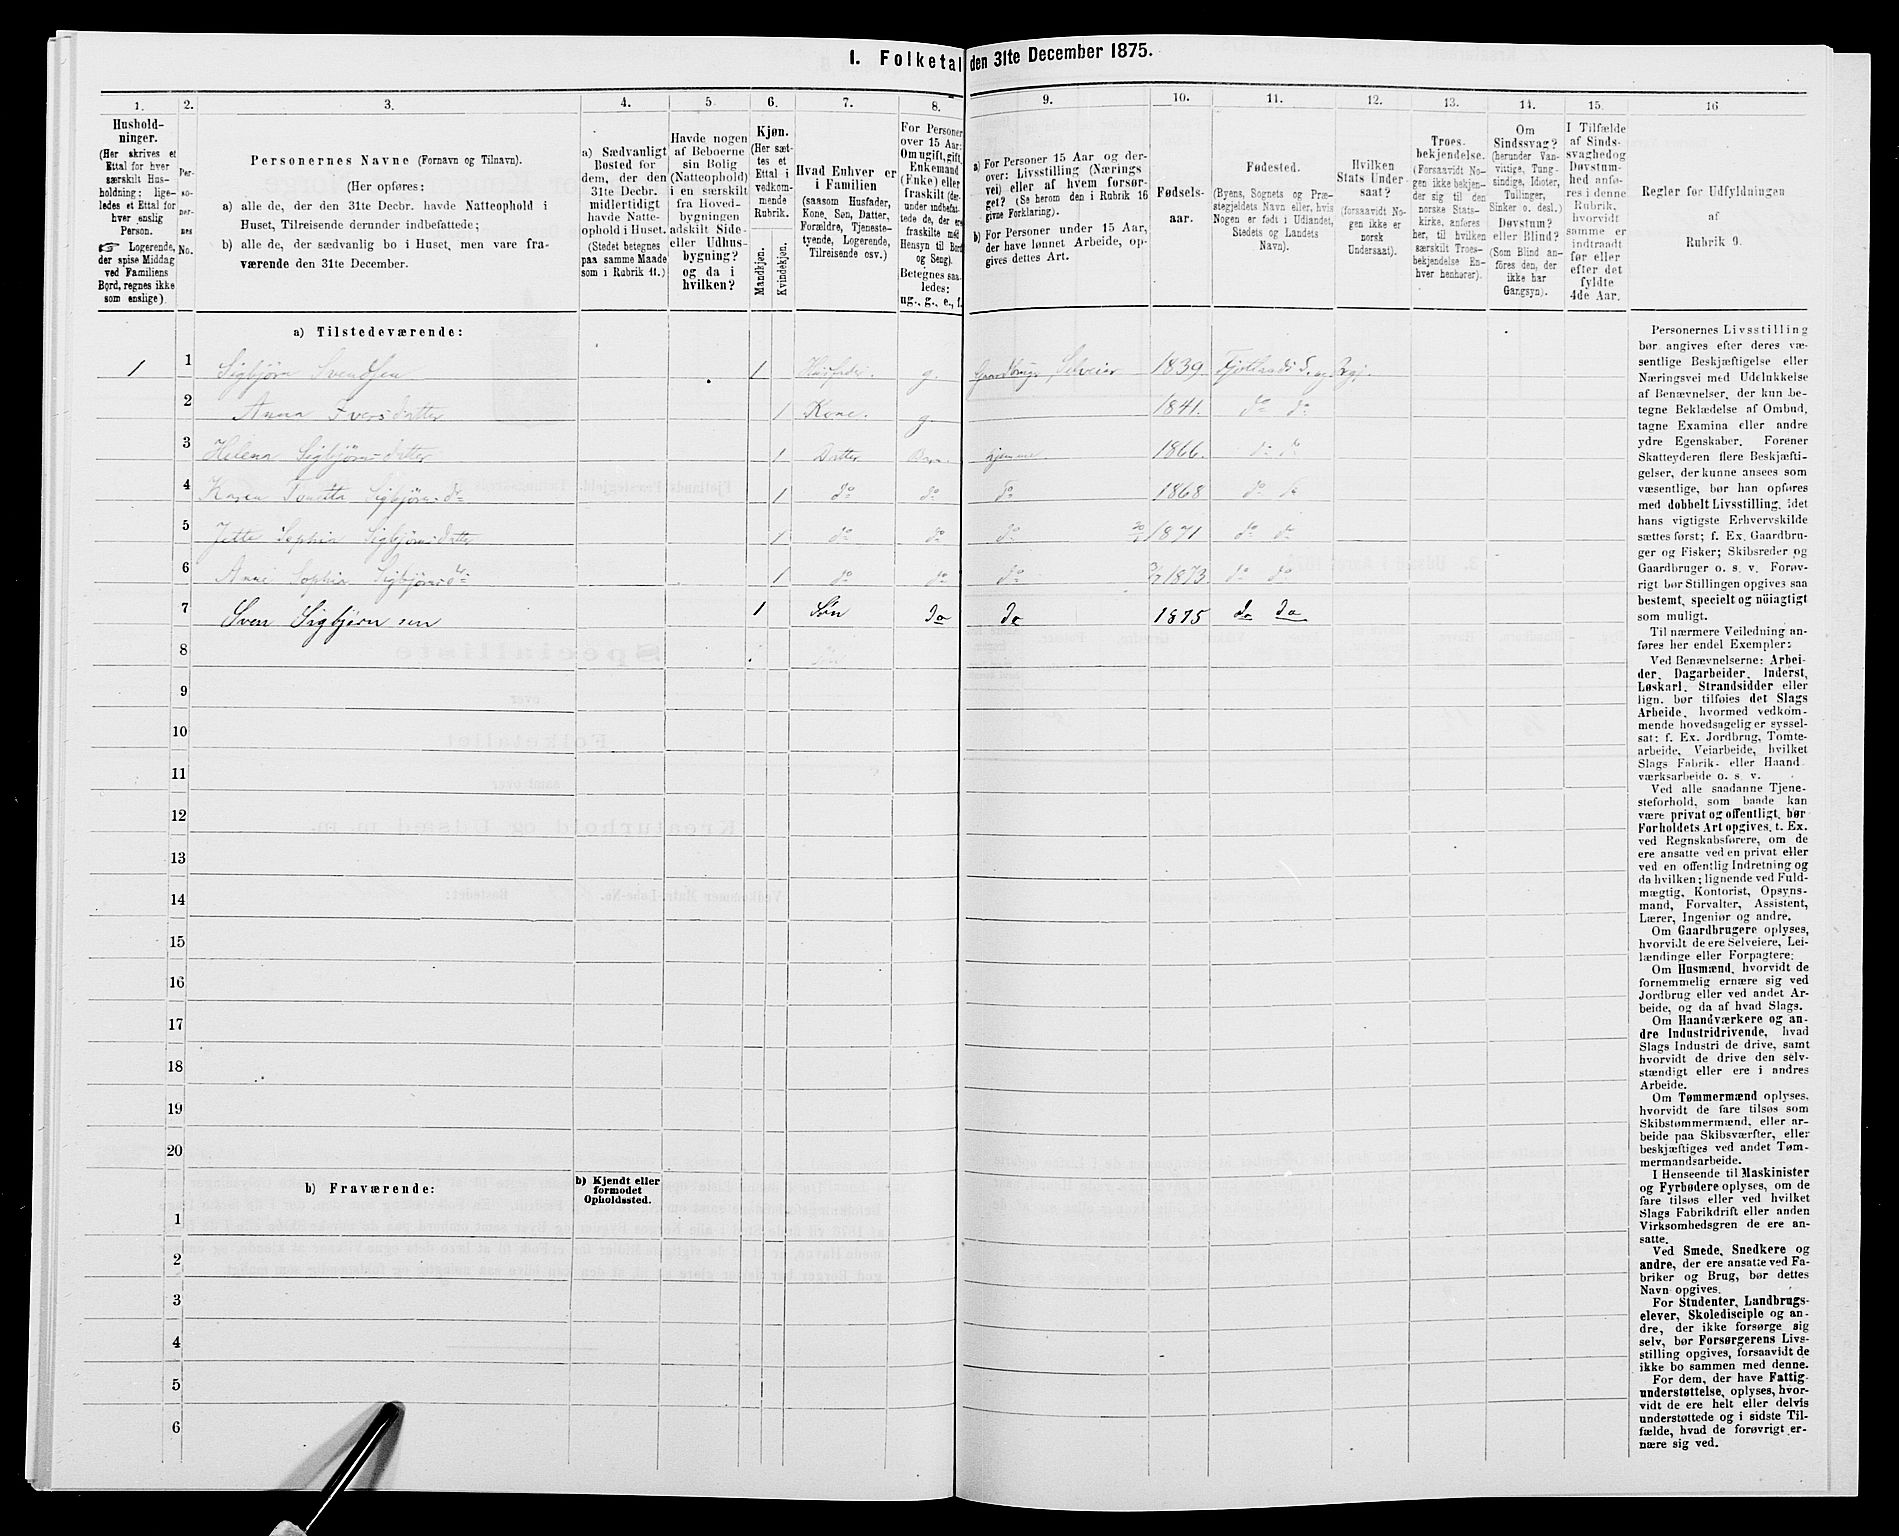 1. Folketal den 31te December 1875.
1. 2. 3. 4. 5. 6. 7. 8. 9. 10. 11. 12. 13. 14. 15. 16
Hushold-
ninger.
(Her skrives et
Ettal for hver
særskilt Hus-
holdning; lige-
ledes et Ettal for
hver enslig
Person.
☞ Logerende,
der spise Middag
ved Familiens
Bord, regnes ikke
som enslige.)
Per-
so-
ner-
nes
No.
Personernes Navne (Fornavn og Tilnavn).
(Her opføres:
a) alle de, der den 31te Decbr. havde Natteophold i
Huset, Tilreisende derunder indbefattede;
b) alle de, der sædvanlig bo i Huset, men vare fra-
værende den 31te December.
a) Sædvanligt
Bosted for
dem, der den
31te Decbr.
midlertidigt
havde Natte-
ophold i Huset.
(Stedet betegnes
paa samme Maade
som i Rubrik 11.)
Havde nogen
af Beboerne
sin Bolig
(Natteophold)
i en særskilt
fra Hoved-
bygningen
adskilt Side-
eller Udhus-
bygning?
og da i
hvilken?
Kjøn.
(Her sæt-
tes et
Ettal i
vedkom-
mende
Rubrik.
Mandkjøn.
Kvindekjøn.
Hvad Enhver er
i Familien
(saasom Husfader,
Kone, Søn, Datter,
Forældre, Tjeneste-
tyende, Logerende,
Tilreisende osv.)
For Personer
over 15 Aar:
Om ugift, gift,
Enkemand
(Enke) eller
fraskilt (der-
under indbefat-
tede de, der ere
fraskilte med
Hensyn til Bord
og Seng).
Betegnes saa-
ledes:
ug., g., e., f.
a) For Personer 15 Aar og der-
over: Livsstilling (Nærings
vei) eller af hvem forsør-
get? (Se herom den i Rubrik 16
givne Forklaring).
b) For Personer under 15 Aar,
der have lønnet Arbeide, op-
gives dettes Art.
Fødsels-
aar.
Fødested.
(Byens, Sognets og Præ-
stegjeldets Navn eller, hvis
Nogen er født i Udlandet,
Stedets og Landets
Navn).
Hvilken
Stats Under-
saat?
(forsaavidt No-
gen ikke er
norsk
Undersaat).
Troes-
bekjendelse.
(Forsaavidt No-
gen ikke bekjen-
der sig til den
norske Stats-
kirke, anføres
her, til hvilken
særskilt Troes-
bekjendelse En-
hver henhører).
Om
Sindssvag?
(herunder Van-
vittige, Tung-
sindige, Idioter,
Tullinger,
Sinker o. desl.)
Døvstum?
eller Blind?
(Som Blind an-
føres den, der
ikke har
Gangsyn).
I Tilfælde
af Sinds-
svaghed og
Døvstum-
hed anfø-
res i denne
Rubrik,
hvorvidt
samme er
indtraadt
før eller
efter det
fyldte
4de Aar.
Regler for Udfyldningen
af
Rubrik 9.
a) Tilstedeværende:
1 1 Sigbjørn Svendsen 1 Husfader. g. Gaardbruger, Selveier 1839 Fjotlands
2 Anna Iversdatter 1 Kone. g 1841. do do
3 Helena Sigbjørnsdatter 1 Datter 1866. do do
4 Karen Sigbjørnsd 1 do do do 1868 do do
5 Jette Sophia Sigbjørnsdatter 1 do do do 1871 do do
6 Anne Sophia Sigbjørnsd 1 do do do 1873 do do
7 Sven Sigbjørnsen 1 Søn do do 1875 do do
8
9
10
11
12
13
14
15
16
17
18
19
20
b) Fraværende:
b) Kjendt eller
formodet
Opholdssted.
1
2
3
4
5
6
Personernes Livsstilling
bør angives efter deres væ-
sentlige Beskjæftigelse eller
Næringsvei med Udelukkelse
af Benævnelser, der kun be-
tegne Beklædelse af Ombud,
tagne Examina eller andre
ydre Egenskaber. Forener
Skatteyderen flere Beskjæfti-
gelser, der kunne ansees som
væsentlige, bør han opføres
med dobbelt Livsstilling, idet
hans vigtigste Erhvervskilde
sættes først; f. Ex. Gaardbru-
ger og Fisker; Skibsreder og
Gaardbruger o. s. v. Forøv-
rigt bør Stillingen opgives saa
bestemt, specielt og nøiagtigt
som muligt.
Til nærmere Veiledning an-
føres her endel Exempler:
Ved Benævnelserne: Arbei-
der, Dagarbeider, Inderst,
Løskarl, Strandsidder eller
lign. bør tilføies det Slags
Arbeide, hvormed vedkom-
mende hovedsagelig er syssel-
sat; f. Ex. Jordbrug, Tomte-
arbeide, Veiarbeide, hvilket
Slags Fabrik- eller Haand
værksarbeide o. s. v.
Ved alle saadanne Tjene-
steforhold, som baade kan
være privat og offentligt, bør
Forholdets Art opgives, t. Ex.
ved Regnskabsførere, om de
ere ansatte ved en privat eller
ved en offentlig Indretning og
da hvilken; lignende ved Fuld-
mægtig, Kontorist, Opsyns-
mand, Forvalter, Assistent,
Lærer, Ingeniør og andre.
Om Gaardbrugere oplyses,
hvorvidt de ere Selveiere, Lei-
lændinge eller Forpagtere;
Om Husmænd, hvorvidt de
fornemmelig ernære sig ved
Jordbrug eller ved andet Ar-
beide, og da af hvad Slags.
Om Haandværkere og an-
dre Industridrivende, hvad
Slags Industri de drive, samt
hvorvidt de drive den selv-
stændigt eller ere i andres
Arbeide.
Om Tømmermænd oplyses,
hvorvidt de fare tilsøs som
Skibstømmermænd, eller ar-
beide paa Skibsværfter, eller
beskjæftiges ved andet Tøm-
mermandsarbeide.
I Henseende til Maskinister
og Fyrbødere oplyses, om de
fare tilsøs eller ved hvilket
Slags Fabrikdrift eller anden
Virksomhedsgren de ere an-
satte.
Ved Smede, Snedkere og
andre, der ere ansatte ved Fa-
briker og Brug, bør dettes
Navn opgives.
For Studenter, Landbrugs-
elever, Skoledisciple og an-
dre, der ikke forsørge sig
selv, bør Forsørgerens Livs-
stilling opgives, forsaavidt de
ikke bo sammen med denne.
For dem, der have Fattig-
understøttelse, oplyses, hvor-
vidt de ere helt eller delvis
understøttede og i sidste Til-
fælde, hvad de forøvrigt er-
nære sig ved.